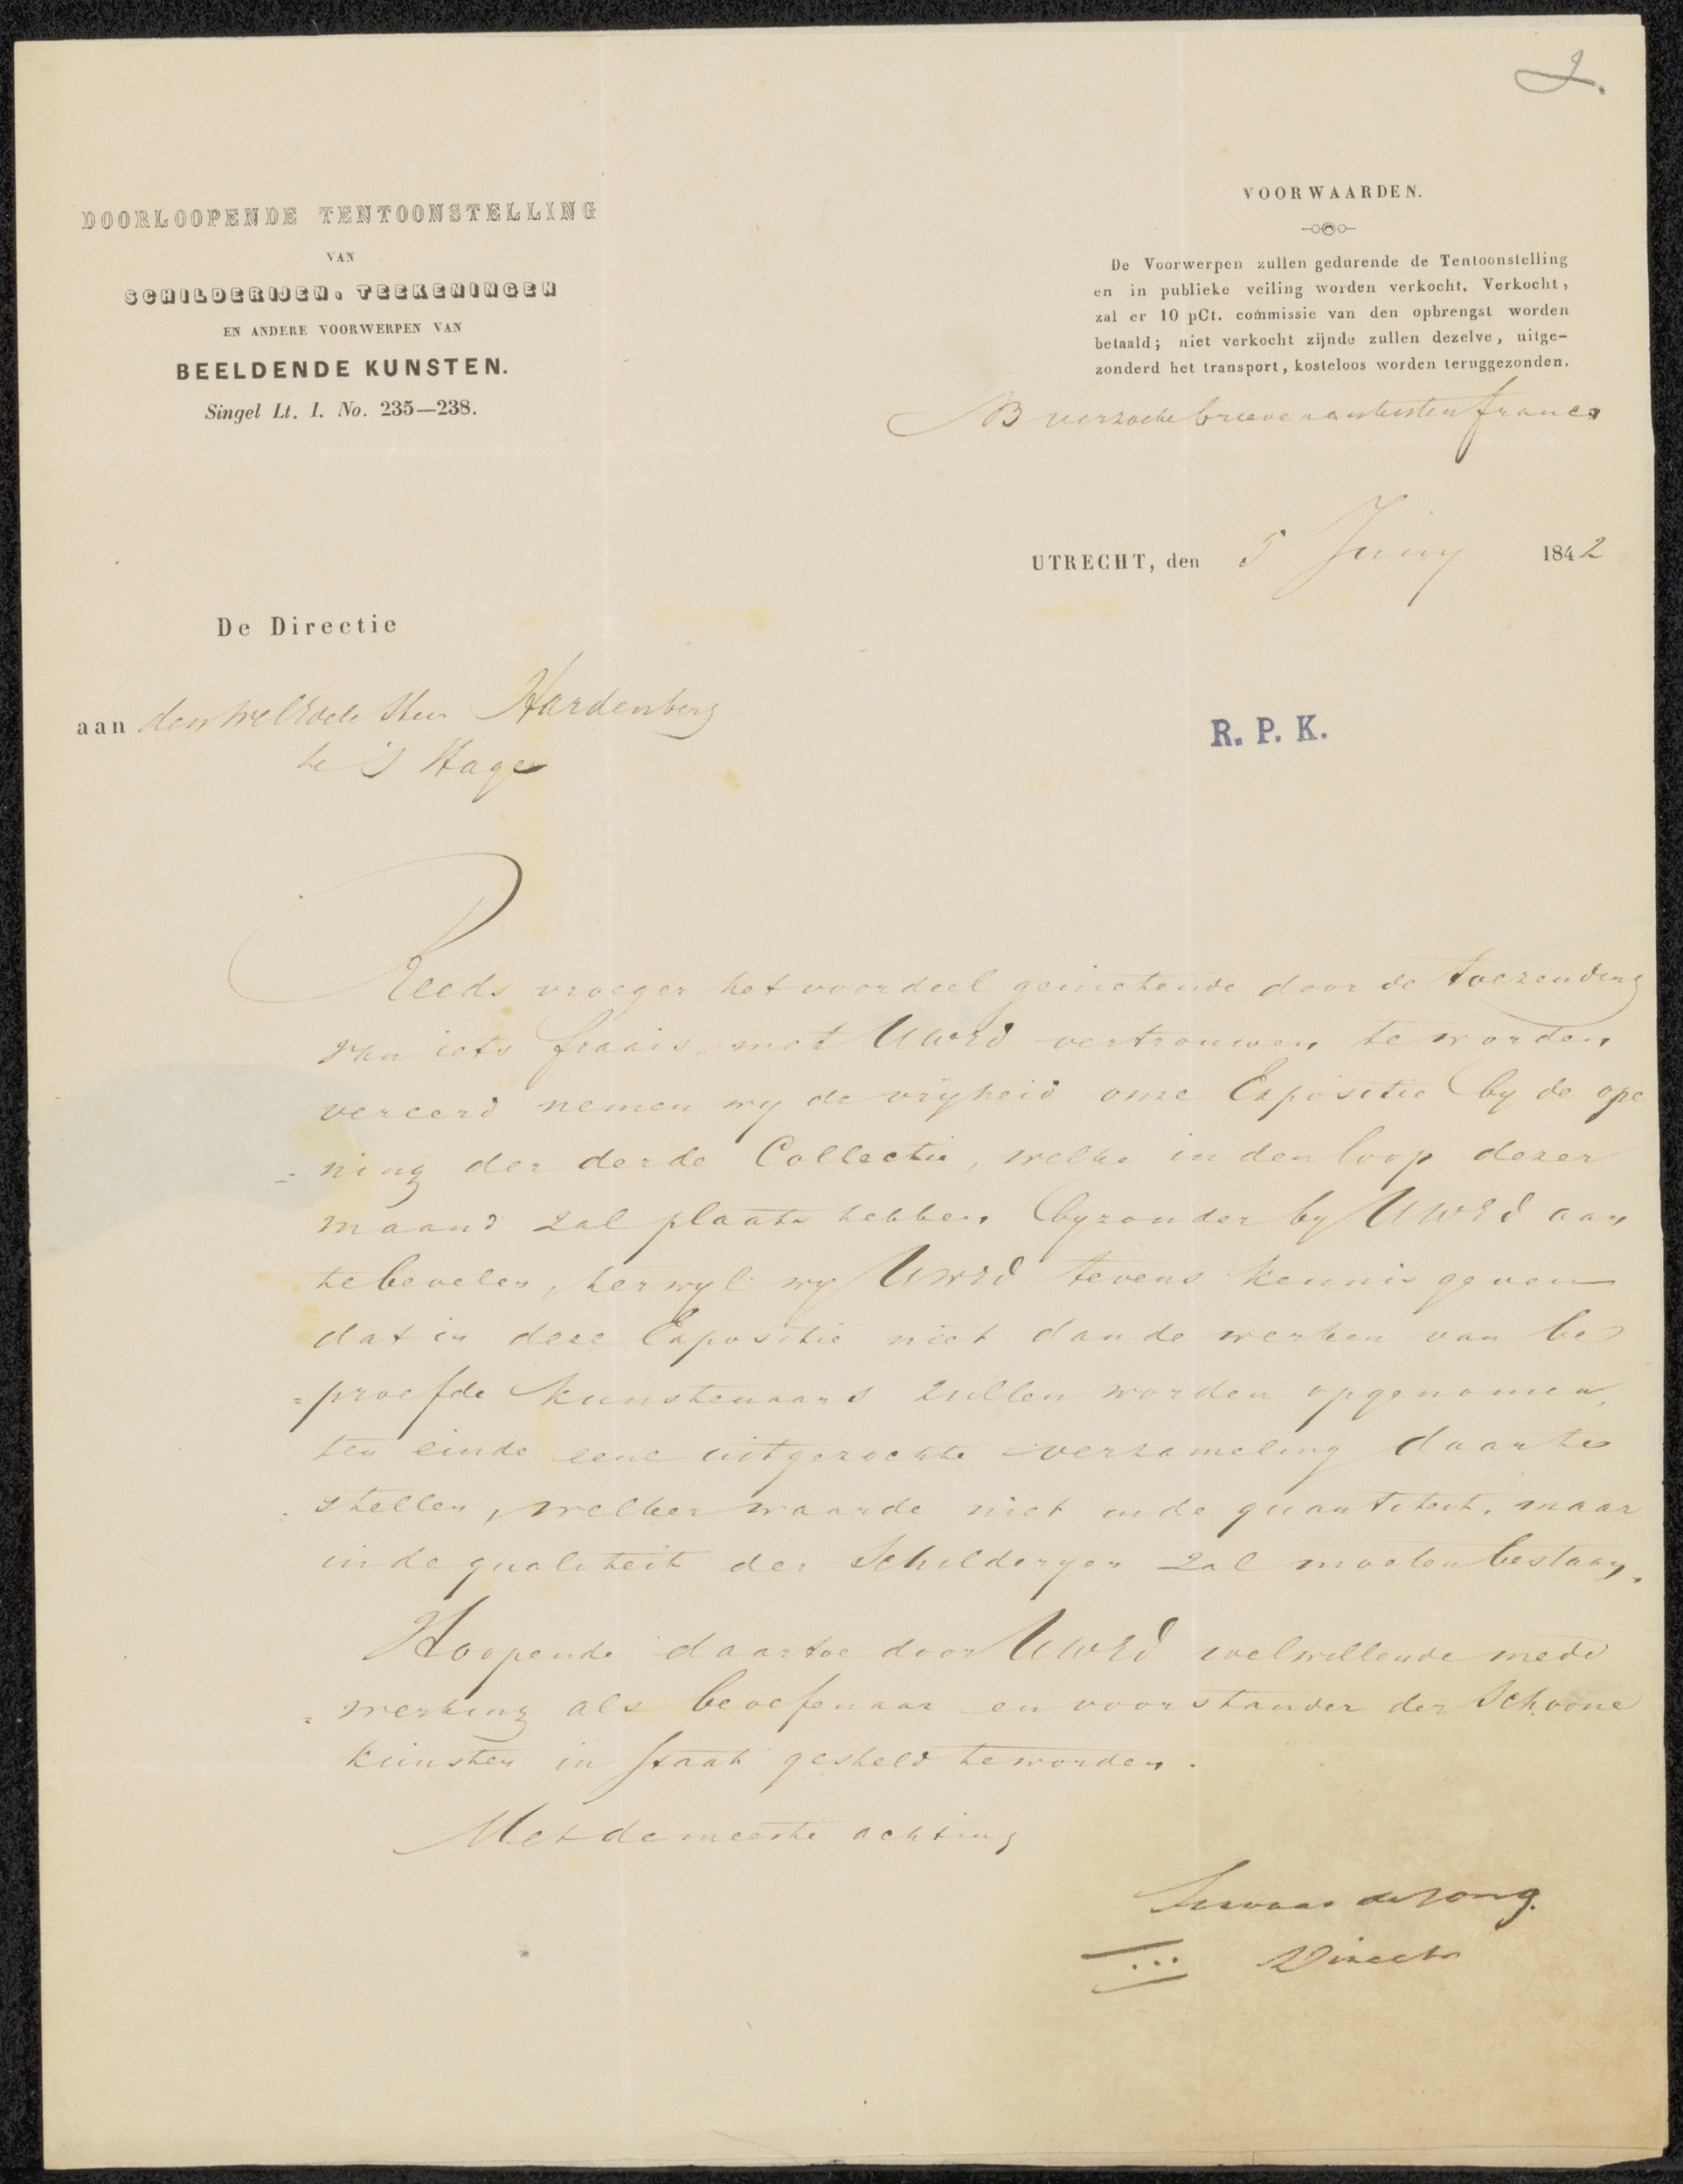 2.
DOORLOOPENDE TENTOONSTELLING
VAN
SCHILDERIJEN, TEEKENINGEN
EN ANDERE VOORWERPEN VAN
BEELDENDE KUNSTEN.
Singel Lt. I. No. 235—238.
VOORWAARDEN.
De Voorwerpen zullen gedurende de Tentoonstelling
en in publieke veiling worden verkocht. Verkocht,
zal er 10 pCt. commissie van den opbrengst worden
betaald; niet verkocht zijnde zullen dezelve, uitge-
zonderd het transport, kosteloos worden teruggezonden.
NB verzoeke brieven franco
UTRECHT, den 5 Juny 1842
De Directie
aan den WelEdele Heer Hardenberg
te S Hage
R. P. K.
Reeds vroeger het voordeel genietende door de toezending
van iets fraais, met UWEd vertrouwen te worden
vereerd nemen wy de vryheid onze Expositie by de ope
- ning der derde Collectie, welke in den loop dezer
maand zal plaats hebben, byzonder by UWEd aan
te bevelen, terwyl wy UWEd tevens kennis geven
dat in deze Expositie niet dan de werken van be
= proefde kunstenaars zullen worden opgenomen,
ten einde eene uitgezochte verzameling daar te
: stellen, welker waarde niet in de quantiteit, maar
in de qualiteit der Schilderyen zal moeten bestaan.
Hoopende daartoe door UWEd welwillende mede
= werking als beoefenaar en voorstander der Schoone
kunsten in staat gesteld te worden.
Met de meeste achting
Servaas de Jong.
Direct